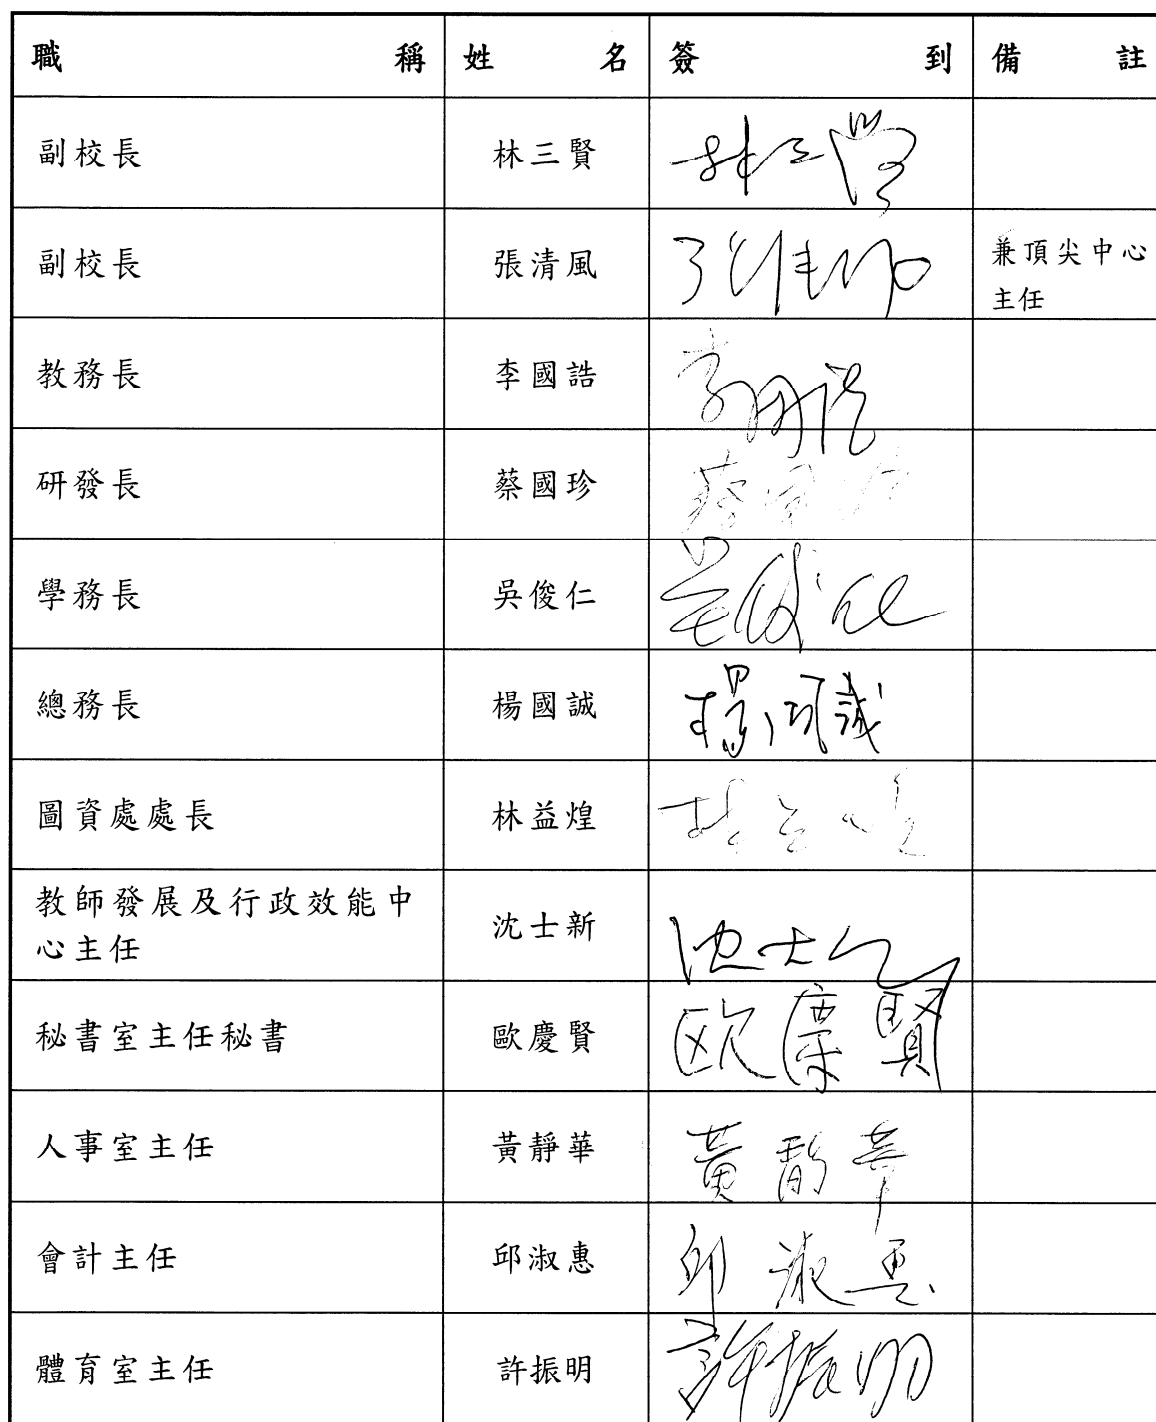 職稱 姓名 簽到 備註
副校長 林三賢 林三賢
副校長 張清風 張清風 兼頂尖中心
主任
教務長 李國誥 李國誥
研發長 蔡國珍 蔡國珍
學務長 吳俊仁 吳俊仁
總務長 楊國誠 楊國誠
圖資處處長 林益煌 林益煌
教師發展及行政效能中
心主任 沈士新 沈士新
秘書室主任秘書 歐慶賢 欧慶賢
人事室主任 黃靜華 黃靜華
會計主任 邱淑惠 邱淑惠
體育室主任 許振明 許振明